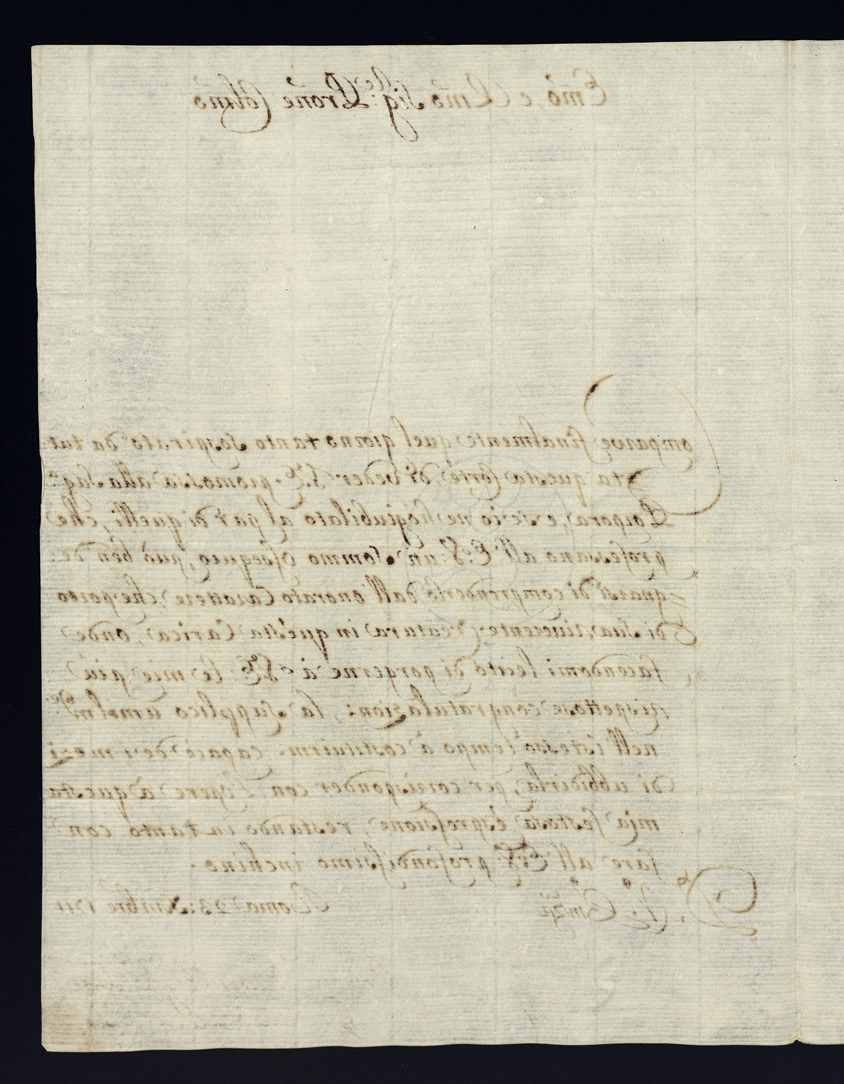 Emõ, e Rmõ Sig:re Prone Colmõ
Comparve finalmente quel giorno tanto sospirato da tut-
ta questa Corte di veder V.E. promossa alla Sag:
Porpora, e se io ne hò giubilato al par di quelli, che
professano all' E.V. un sommo ossequio, può ben de=
=gnarsi di comprenderlo dall' onorato Carattere, che porto
di Sua riverente Creatura in questa Carica, onde
facendomi lecito di porgerne à V.E. le mie più
rispettose congratulazioni, la supplico umilm:te
nell' istesso tempo à costituirmi capace de suoi
di ubbidirla, per corrisponder con l'opere à questa
mia festosa espressione, restando intanto con
fare all' E.V. profondissimo inchino.
Di V.ra Em:za Roma 23: Xmbre 1711